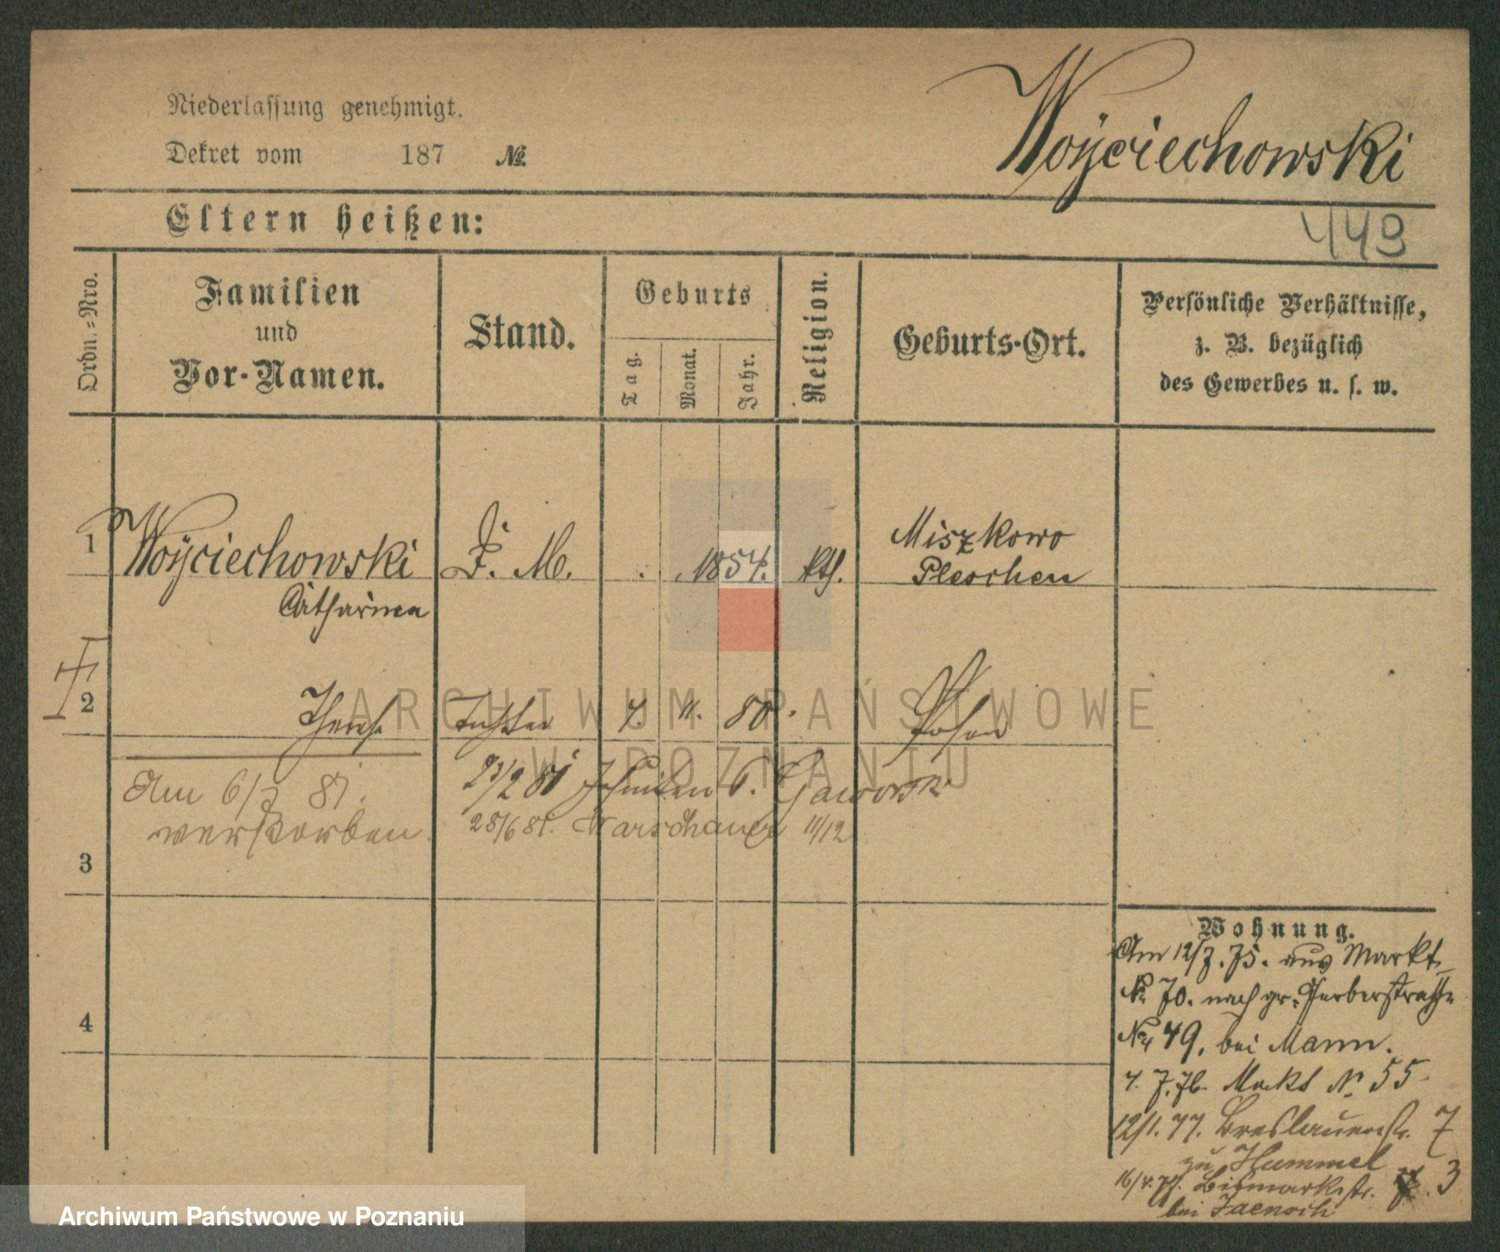 Niederlassung genehmigt.
Dekret vom 187 №
Woÿciechowski
449
Eltern heißen:
Ordn.=Nro.
Familien
und
Vor-Namen.
Stand.
Geburts
Tag.
Monat.
Jahr.
Religion.
Geburts-Ort.
Persönliche Verhältnisse,
z. B. bezüglich
des Gewerbes u. s. w.
1 Woÿciechowski D. M. 1854. kth. Miszkowo
Catharina Pleschen
2 Therese Tochter 7. 11. 80. Posen
Am 6/3 81. 23/2 81 6. Gaworski
verstorben. 25/6 81. Warschauer 11/12
3
4
Wohnung.
Am 12/7. 75. aus Markt
№ 70. nach gr. Gerberstraße
№ 49, bei Mann.
4. 7. 76. Markt № 55
12/1. 77. Breslauerstr. 7
zu Hummel
16/4. 77. Bismarkstr. 3
bei Jaensch
ARCHIWUM PAŃSTWOWE
W POZNANIU
Archiwum Państwowe w Poznaniu